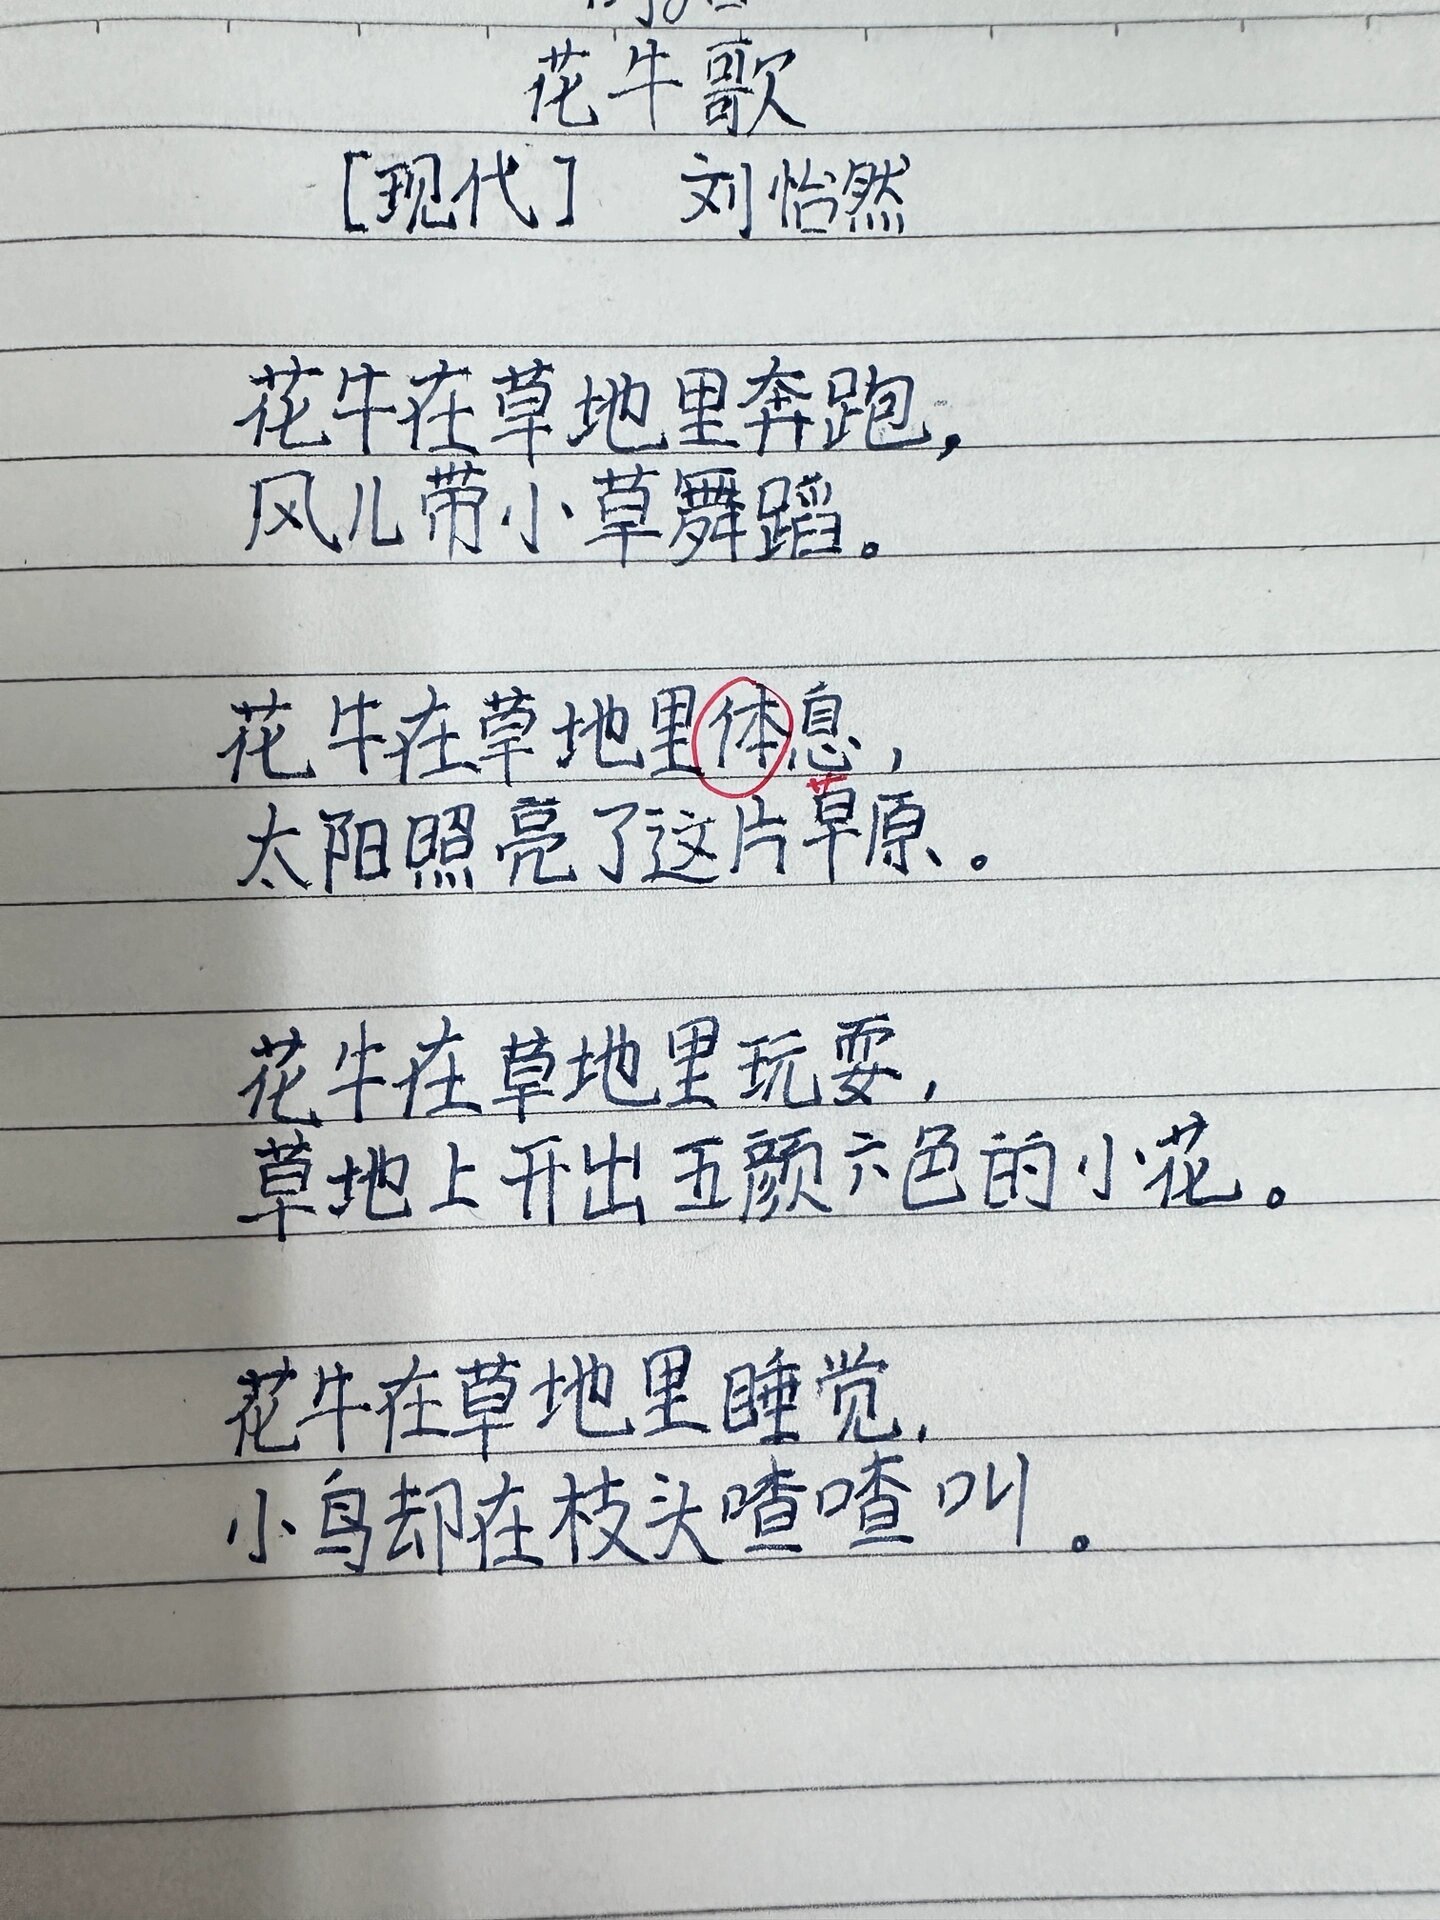 花牛歌
[现代] 刘怡然
花牛在草地里奔跑，
风儿带小草舞蹈。
花牛在草地里体息，
太阳照亮了这片草原。
花牛在草地里玩耍，
草地上开出五颜六色的小花。
花牛在草地里睡觉，
小鸟却在枝头喳喳叫。